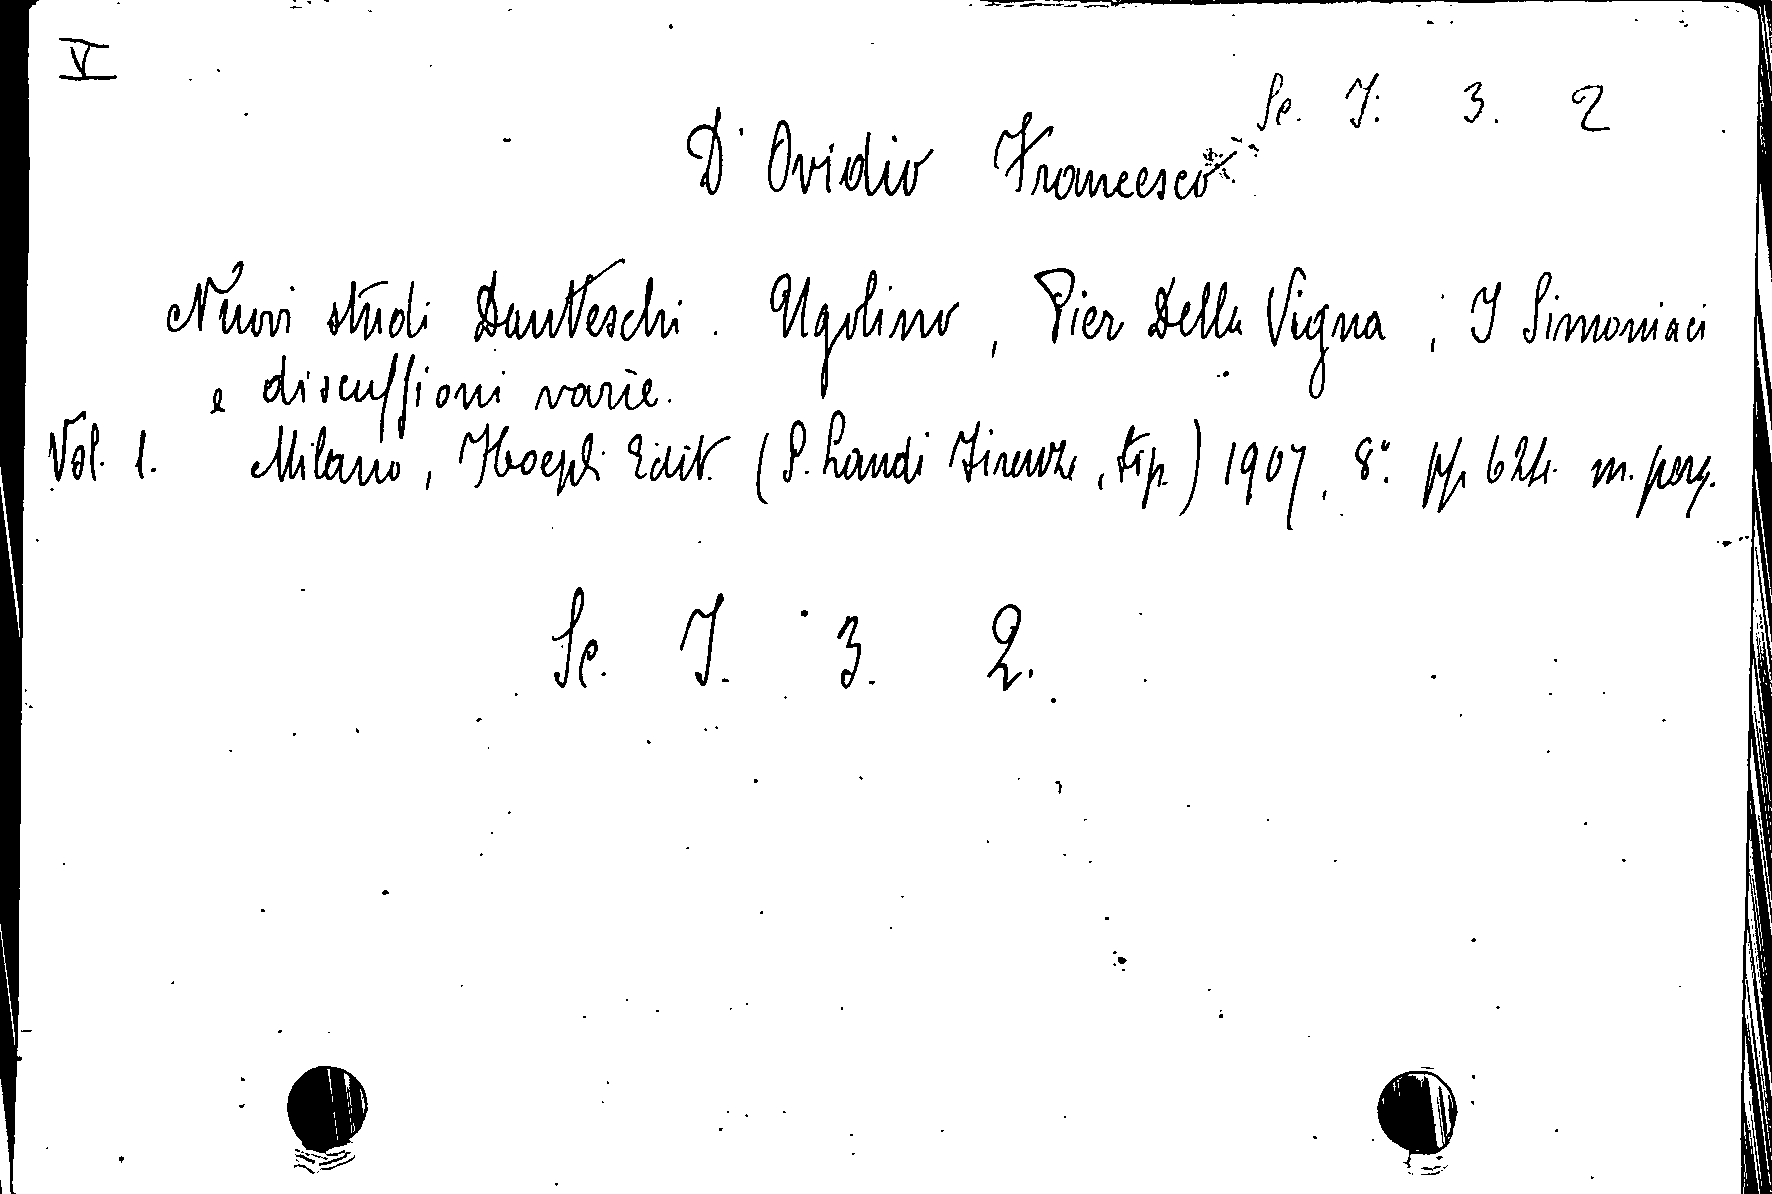 V
Se. I. 3. 2
D'Ovidio Francesco
Nuovi studi Danteschi. Ugolino, Pier Della Vigna, I Simoniaci
e discussioni varie.
Vol. 1. Milano, Hoepli Edit. (S. Landi Firenze, tip.) 1907, 8º pp. 624. m. perg.
Se. I. 3. 2.